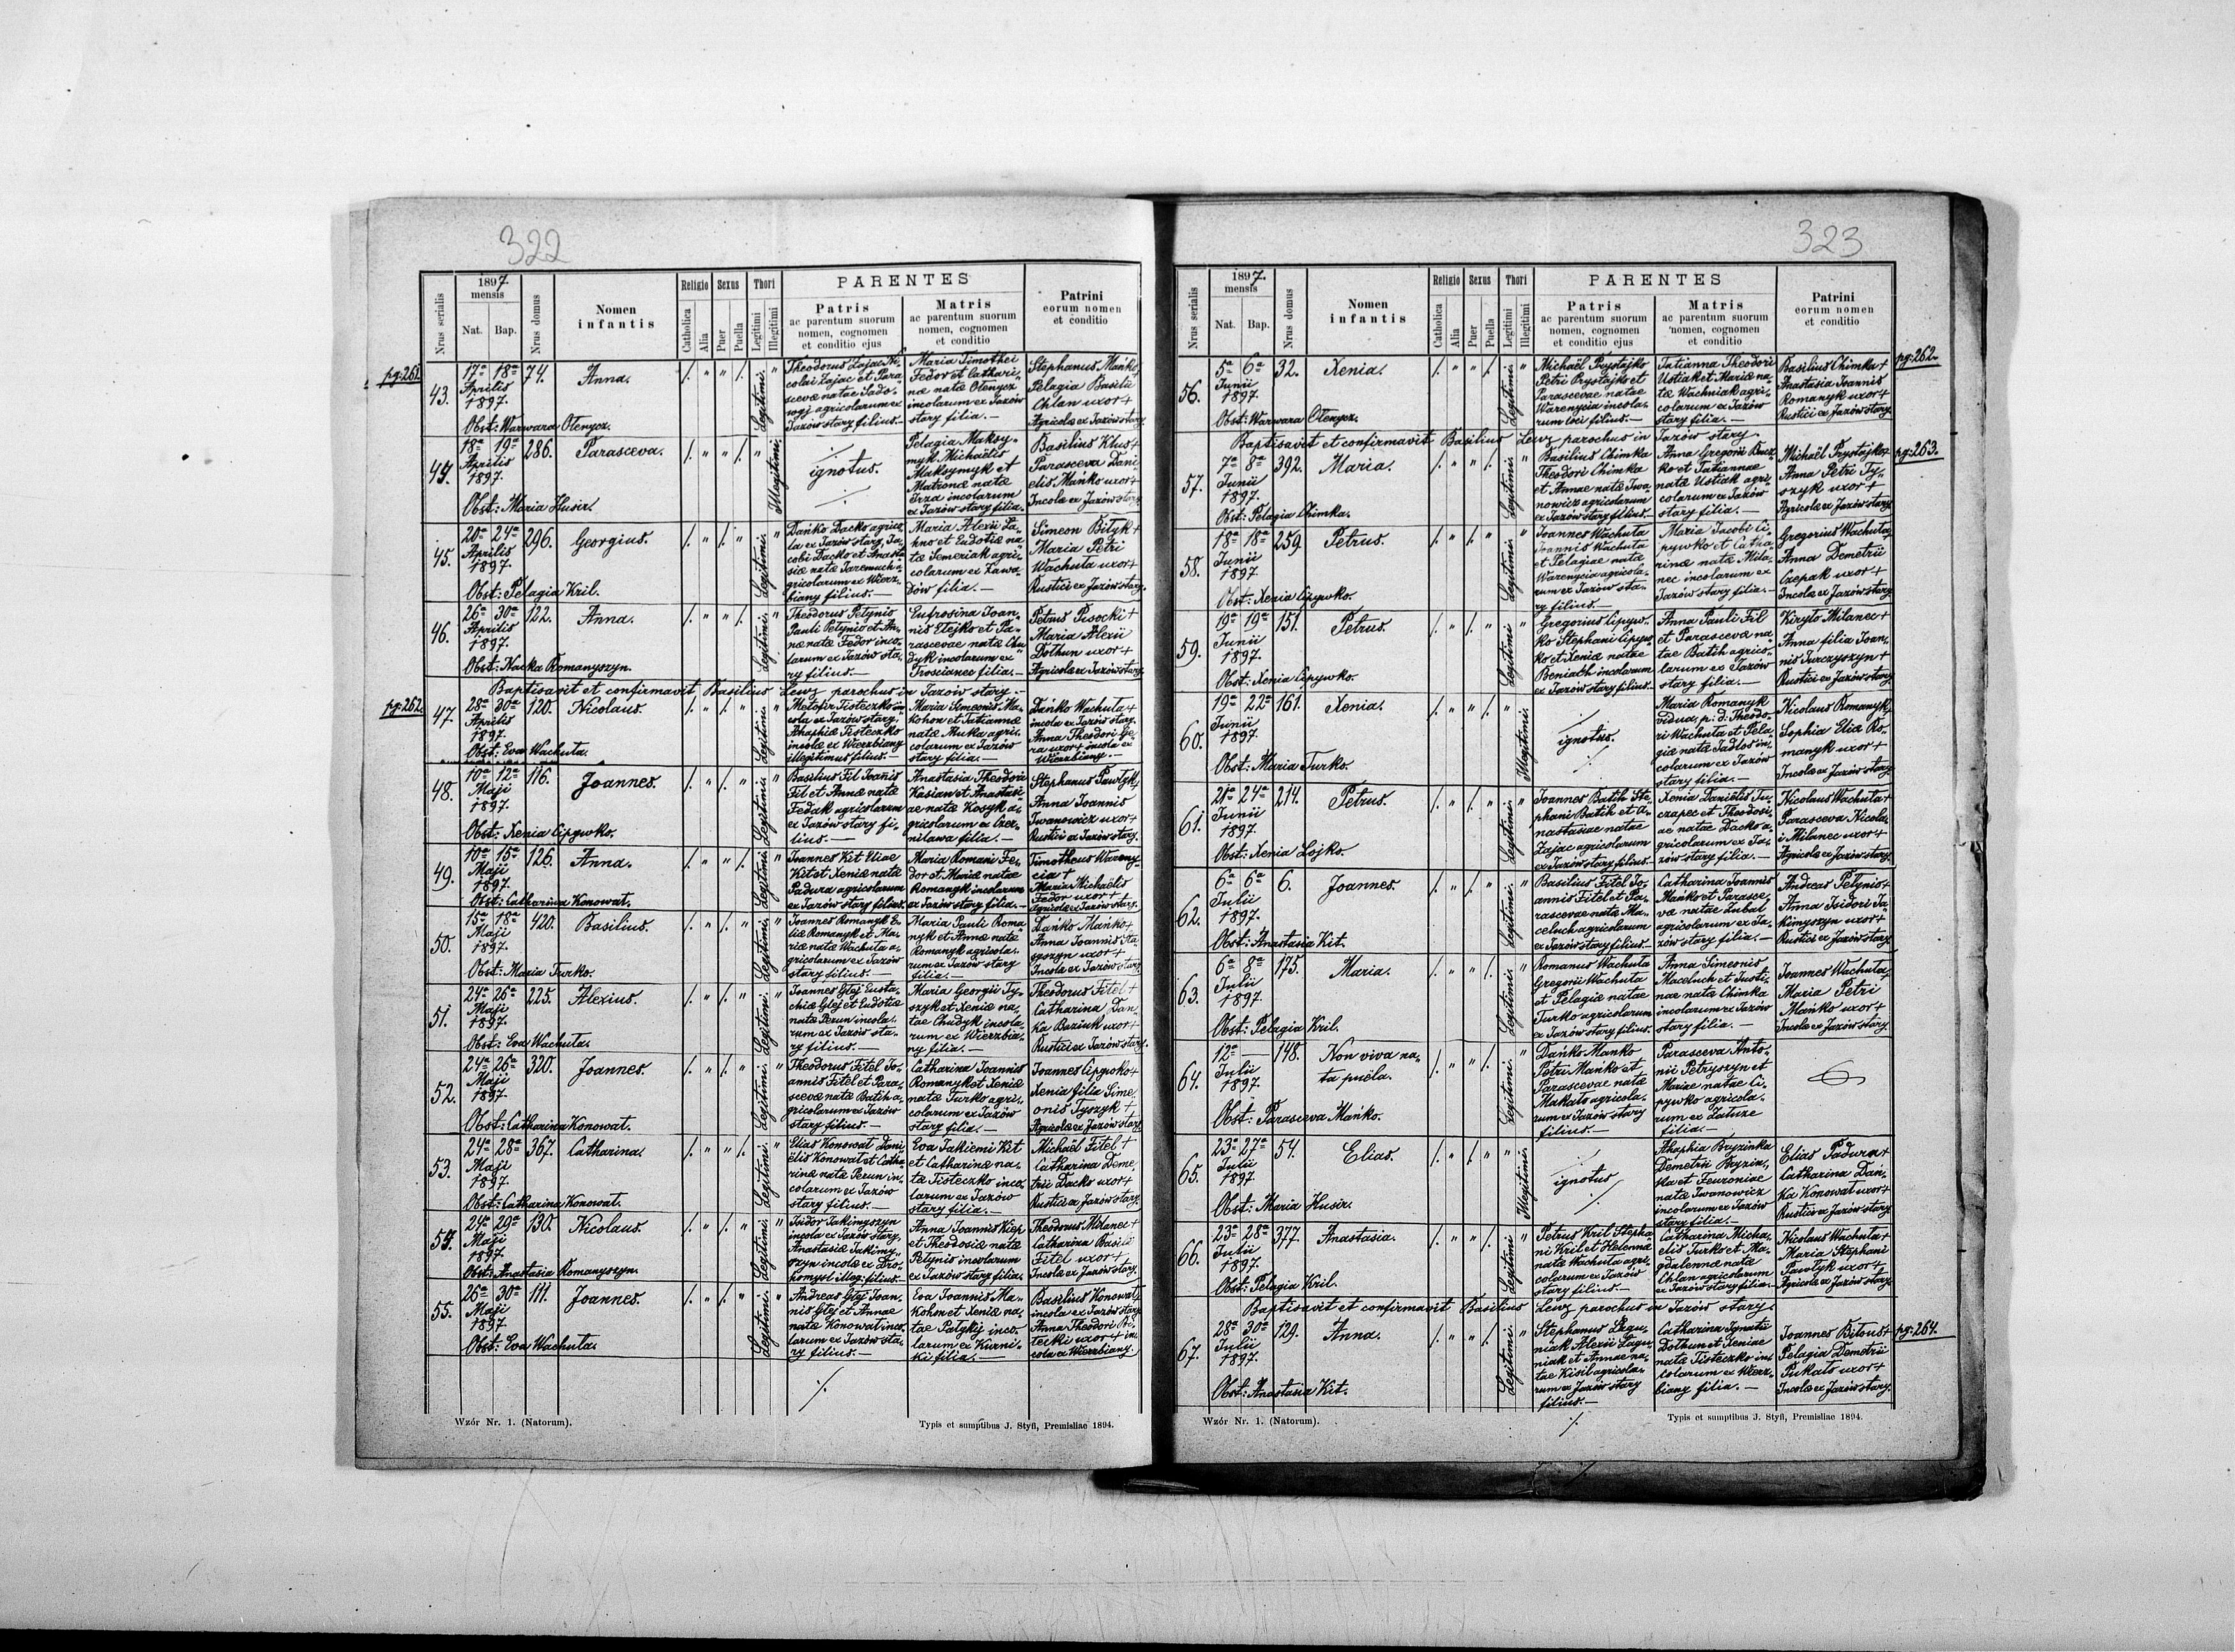 322
1897.
mensis
Nrus serialis
Nat.
Bap.
Nrus domus
Nomen
infantis
Religio
Catholica
Alia
Sexus
Puer
Puella
Thori
Legitimi
Illegitimi
PARENTES
Patris
ac parentum suorum
nomen, cognomen
et conditio ejus
Matris
ac parentum suorum
nomen, cognomen
et conditio
Patrini
eorum nomen
et conditio
pg: 261
43.
17a 18a
Aprilis
1897.
74.
Anna.
Legitimi.
Theodorus Zajac Ni-
colai Zajac et Para-
scevae natae Sado-
woj agricolarum ex
Jazów stary filius.—
Maria Timothei
Fedor et Cathari-
nae natae Olenycz
incolarum ex Jazów
stary filia.—
Stephanus Mańko+
Pelagia Basilii
Chlan uxor+
Agricolae ex Jazów stary.
Obst: Warwara Olenycz.
44.
18a 19a
Aprilis
1897.
286.
Parasceva.
Illegitimi.
ignotus.
Pelagia Maksy-
myk Michaëlis
Maksymyk et
Matronae natae
incolarum
ex Jazów stary filia.
Basilius Klus+
Parasceva Dani-
elis Mańko uxor+
Incolae ex Jazów stary.
Obst: Maria Husir.
45.
20a 24a
Aprilis
1897.
296.
Georgius.
Legitimi.
Dańko Dacko agrico-
la ex Jazów stary, Ja-
cobi Dacko et Anasta-
siae natae Jaremuch a-
gricolarum ex Wierz-
biany filius.—
Maria Alexii La-
hno et Eudotiae na-
tae Semeniak agri-
colarum ex Zawa-
dów filia.—
Simeon Bityk+
Maria Petri
Wachuta uxor+
Rustici ex Jazów stary.
Obst: Pelagia Kril.
46.
26a 30a
Aprilis
1897.
122.
Anna.
Legitimi.
Theodorus Petynio
Pauli Petynio et An-
nae natae Fedor inco-
larum ex Jazów sta-
ry filius.—
Eufrosina Joan-
nis Elejko et Pa-
rascevae natae Chu-
dyk incolarum ex
Troscianec filia.—
Petrus Pisocki+
Maria Alexii
Dothun uxor+
Agricolae ex Jazów stary.
Obst: Nacka Romanyszyn.
Baptisavit et confirmavit Basilius Lewz parochus in Jazów stary.—
pg: 262.
47.
28a 30a
Aprilis
1897.
120.
Nicolaus.
Legitimi.
Metofir Tisteczko in-
cola ex Jazów stary,
Ahaphiae Tisteczko
incolae ex Wierzbiany
illegitimus filius.—
Maria Simeonis Ma-
kohon et Tatiannae
natae Muka agri-
colarum ex Jazów
stary filia.—
Dańko Wachuta+
incola ex Jazów stary.
Anna Theodori Ge-
ra uxor+ incola ex
Wierzbiany.—
Obst: Eva Wachuta.
48.
10a 12a
Maji
1897.
116.
Joannes.
Legitimi
Basilius Fil Joannis
Fil et Annae natae
Fedak agricolarum
ex Jazów stary fi-
lius.—
Anastasia Theodori
Kasian et Anastasi-
ae natae Kosyk a-
gricolarum ex Czer-
nilawa filia.—
Stephanus Pawlyk+
Anna Joannis
Iwanowicz uxor+
Rustici ex Jazów stary.
Obst: Xenia Cipywko.
49.
10a 15a
Maji
1897.
126.
Anna.
Legitimi.
Joannes Kit Eliae
Kit et Xeniae natae
Padura agricolarum
ex Jazów stary filius.
Maria Romani Fe-
dor et Mariae natae
Romanyk incolarum
ex Jazów stary filia.—
Timotheus Wareny-
cia+
Maria Michaëlis
Fedor uxor+
Agricolae ex Jazów stary.
Obst: Catharina Konowat.
50.
15a 18a
Maji
1897.
420.
Basilius.
Legitimi.
Joannes Romanyk E-
liae Romanyk et Ma-
riae natae Wachuta a-
gricolarum ex Jazów
stary filius.—
Maria Pauli Roma-
nyk et Annae natae
Romanyk agricola-
rum ex Jazów stary
filia.—
Dańko Mańko+
Anna Joannis
uxor+
Incolae ex Jazów stary.
Obst: Maria Turko.
51.
24a 26a
Maji
1897.
225.
Alexius.
Legitimi.
Joannes Glej Eusta-
chiae Glej et Eudotiae
natae Perun incola-
rum ex Jazów sta-
ry filius.—
Maria Georgii Ty-
szyk et Xeniae na-
tae Chudyk incola-
rum ex Wierzbia-
ny filia.—
Theodorus Fitel+
Catharina Dań-
ka Baziuk uxor+
Rustici ex Jazów stary.
Obst: Eva Wachuta.
52.
24a 26a
Maji
1897.
320.
Joannes.
Legitimi.
Theodorus Fitel Jo-
annis Fitel et Para-
scevae natae Batih a-
gricolarum ex Jazów
stary filius.—
Catharina Joannis
Romanyk et Xeniae
natae Turko agri-
colarum ex Jazów
stary filia.—
Joannes Cipywko+
Xenia filia Sime-
onis Tyszyk+
Agricolae ex Jazów stary.
Obst: Catharina Konowat.
53.
24a 28a
Maji
1897.
367.
Catharina.
Legitimi.
Elias Konowat Dani-
ëlis Konowat et Catha-
rinae natae Perun in-
colarum ex Jazów
stary filius.—
Eva Jakiemi Kit
et Catharinae na-
tae Tisteczko inco-
larum ex Jazów
stary filia.—
Michaël Fitel+
Catharina Deme-
trii Dacko uxor+
Rustici ex Jazów stary.
Obst: Catharina Konowat.
54.
24a 29a
Maji
1897.
130.
Nicolaus.
Legitimi.
Isidor Jakimyszyn
incola ex Jazów stary,
Anastasiae Jakimy-
szyn incolae ex Dro-
homysl illeg. filius.
Anna Joannis Kiep
et Theodosiae natae
Petynio incolarum
ex Jazów stary filia.
Theodorus Milanec+
Catharina Basilii
Fitel uxor+
Incolae ex Jazów stary.
Obst: Anastasia Romanyszyn.
55.
26a 30a
Maji
1897
111.
Joannes.
Legitimi.
Andreas Glej Joan-
nis Glej et Annae
natae Konowat inco-
larum ex Jazów sta-
ry filius.—
Eva Joannis Ma-
kohon et Xeniae na-
tae Patykij inco-
larum ex Kurni-
kii filia.—
Basilius Konowat+
incola ex Jazów stary
Anna Theodori Bi-
tecki uxor+ in-
cola ex Wierzbiany.
Obst: Eva Wachuta.
Wzór Nr. 1. (Natorum).
Typis et sumptibus J. Styfi, Premisliae 1894.
323
1897.
mensis
Nrus serialis
Nat.
Bap.
Nrus domus
Nomen
infantis
Religio
Catholica
Alia
Sexus
Puer
Puella
Thori
Legitimi
Illegitimi
PARENTES
Patris
ac parentum suorum
nomen, cognomen
et conditio ejus
Matris
ac parentum suorum
nomen, cognomen
et conditio
Patrini
eorum nomen
et conditio
pg: 262.
56.
5a 6a
Junii
1897.
32.
Xenia.
Legitimi.
Michaël Prystajko
Petri Prystajko et
Parascevae natae
Warenycia incola-
rum loci filius.—
Tatianna Theodori
Ustiak et Mariae na-
tae Wachniak agri-
colarum ex Jazów
stary filia.—
Basilius Chimka+
Anastasia Joannis
Romanyk uxor+
Rustici ex Jazów stary.
Obst: Warwara Olenycz.
Baptisavit et confirmavit Basilius Lewz parochus in Jazów stary.
pg: 263.
57.
7a 8a
Junii
1897.
392.
Maria.
Legitimi.
Basilius Chimka
Theodori Chimka
et Annae natae Iwa-
nowicz agricolarum
ex Jazów stary filius.
Anna Gregorii Bucz-
ko et Tatiannae
natae Ustiak agri-
colarum ex Jazów
stary filia.—
Michaël Prystajko+
Anna Petri Ty-
szyk uxor+
Agricolae ex Jazów stary.
Obst: Pelagia Chimka.
58.
18a 18a
Junii
1897.
259.
Petrus.
Legitimi.
Joannes Wachuta
Joannis Wachuta
et Pelagiae natae
Warenycia agricola-
rum ex Jazów sta-
ry filius.—
Maria Jacobi Ci-
pywko et Catha-
rinae natae Mila-
nec incolarum ex
Jazów stary filia.—
Gregorius Wachuta+
Anna Demetrii
Czepak uxor+
Incolae ex Jazów stary.
Obst: Xenia Cipywko.
59.
19a 19a
Junii
1897.
151.
Petrus.
Legitimi
Gregorius Cipyw-
ko Stephani Cipyw-
ko et Xeniae natae
Beniach incolarum
ex Jazów stary filius.
Anna Pauli Fil
et Parascevae na-
tae Batih agrico-
larum ex Jazów
stary filia.—
Kirylo Milanec+
Anna filia Joan-
nis Jurczyszyn+
Rustici ex Jazów stary.
Obst: Xenia Cipywko.
60.
19a 22a
Junii
1897.
161.
Xenia.
Illegitimi.
ignotus.
Maria Romanyk
vidua, p. d. Theodo-
ri Wachuta et Pela-
giae natae Jadlos in-
colarum ex Jazów
stary filia.—
Nicolaus Romanyk+
Sophia Eliae Ro-
manyk uxor+
Incolae ex Jazów stary.
Obst: Maria Turko.
61.
21a 24a
Junii
1897.
214.
Petrus.
Legitimi
Joannes Batih Ste-
phani Batih et A-
nastasiae natae
Zajac agricolarum
ex Jazów stary filius.
Xenia Daniëlis Tu-
czapec et Theodosi-
ae natae Dacko a-
gricolarum ex Ja-
zów stary filia.—
Nicolaus Wachuta+
Parasceva Nicola-
i Milanec uxor+
Agricolae ex Jazów stary.
Obst: Xenia Lojko.
62.
6a 6a
Julii
1897.
6.
Joannes.
Legitimi.
Basilius Fitel Jo-
annis Fitel et Pa-
rascevae natae Ma-
celuch agricolarum
ex Jazów stary filius.
Catharina Joannis
Mańko et Parasce-
vae natae Zubal
agricolarum ex Ja-
zów stary filia.—
Andreas Petynio+
Anna Isidori Ja-
kimyszyn uxor+
Rustici ex Jazów stary.
Obst: Anastasia Kit.
63.
6a 8a
Julii
1897.
175.
Maria.
Legitimi.
Romanus Wachuta
Gregorii Wachuta
et Pelagiae natae
Turko agricolarum
ex Jazów stary filius.
Anna Simeonis
Maceluch et Justi-
nae natae Chimka
incolarum ex Jazów
stary filia.—
Joannes Wachuta+
Maria Petri
Mańko uxor+
Incolae ex Jazów stary.
Obst: Pelagia Kril.
64.
12a —
Julii
1897.
148.
Non viva na-
ta puëla.
Legitimi.
Dańko Mańko
Petri Mańko et
Parascevae natae
Makalo agricola-
rum ex Jazów stary
filius.—
Parasceva Anto-
nii Petryszyn et
Mariae natae Ci-
pywko agricola-
rum ex Zaluze
filia.—
Obst: Parasceva Mańko.
65.
23a 27a
Julii
1897.
54.
Elias.
Illegitimi.
ignotus
Ahaphia Bryzinka
Demetrii Bryzin-
ka et Feuroniae
natae Iwanowicz
incolarum ex Jazów
stary filia.—
Elias Padura+
Catharina Dań-
ka Konowat uxor+
Rustici ex Jazów stary.
Obst: Maria Husir.
66.
23a 28a
Julii
1897.
377.
Anastasia.
Legitimi
Petrus Kril Stepha-
ni Kril et Helennae
natae Wachuta agri-
colarum ex Jazów
stary filius.—
Catharina Micha-
elis Turko et Ma-
gdalennae natae
Chlan agricolarum
ex Jazów stary filia.—
Nicolaus Wachuta+
Maria Stephani
Pawlyk uxor+
Agricolae ex Jazów stary.
Obst: Pelagia Kril.
Baptisavit et confirmavit Basilius Lewz parochus in Jazów stary.
pg: 264.
67.
28a 30a
Julii
1897.
129.
Anna.
Legitimi.
Stephanus Legu-
niak Alexii Legu-
niak et Annae na-
tae Kisil agricola-
rum ex Jazów stary
filius.—
Catharina Ignatii
Dothun et Xeniae
natae Tisteczko in-
colarum ex Wierz-
biany filia.—
Joannes Bitous+
Pelagia Demetrii
Pukalo uxor+
Incolae ex Jazów stary.
Obst: Anastasia Kit.
Wzór Nr. 1. (Natorum).
Typis et sumptibus J. Styfi, Premisliae 1894.